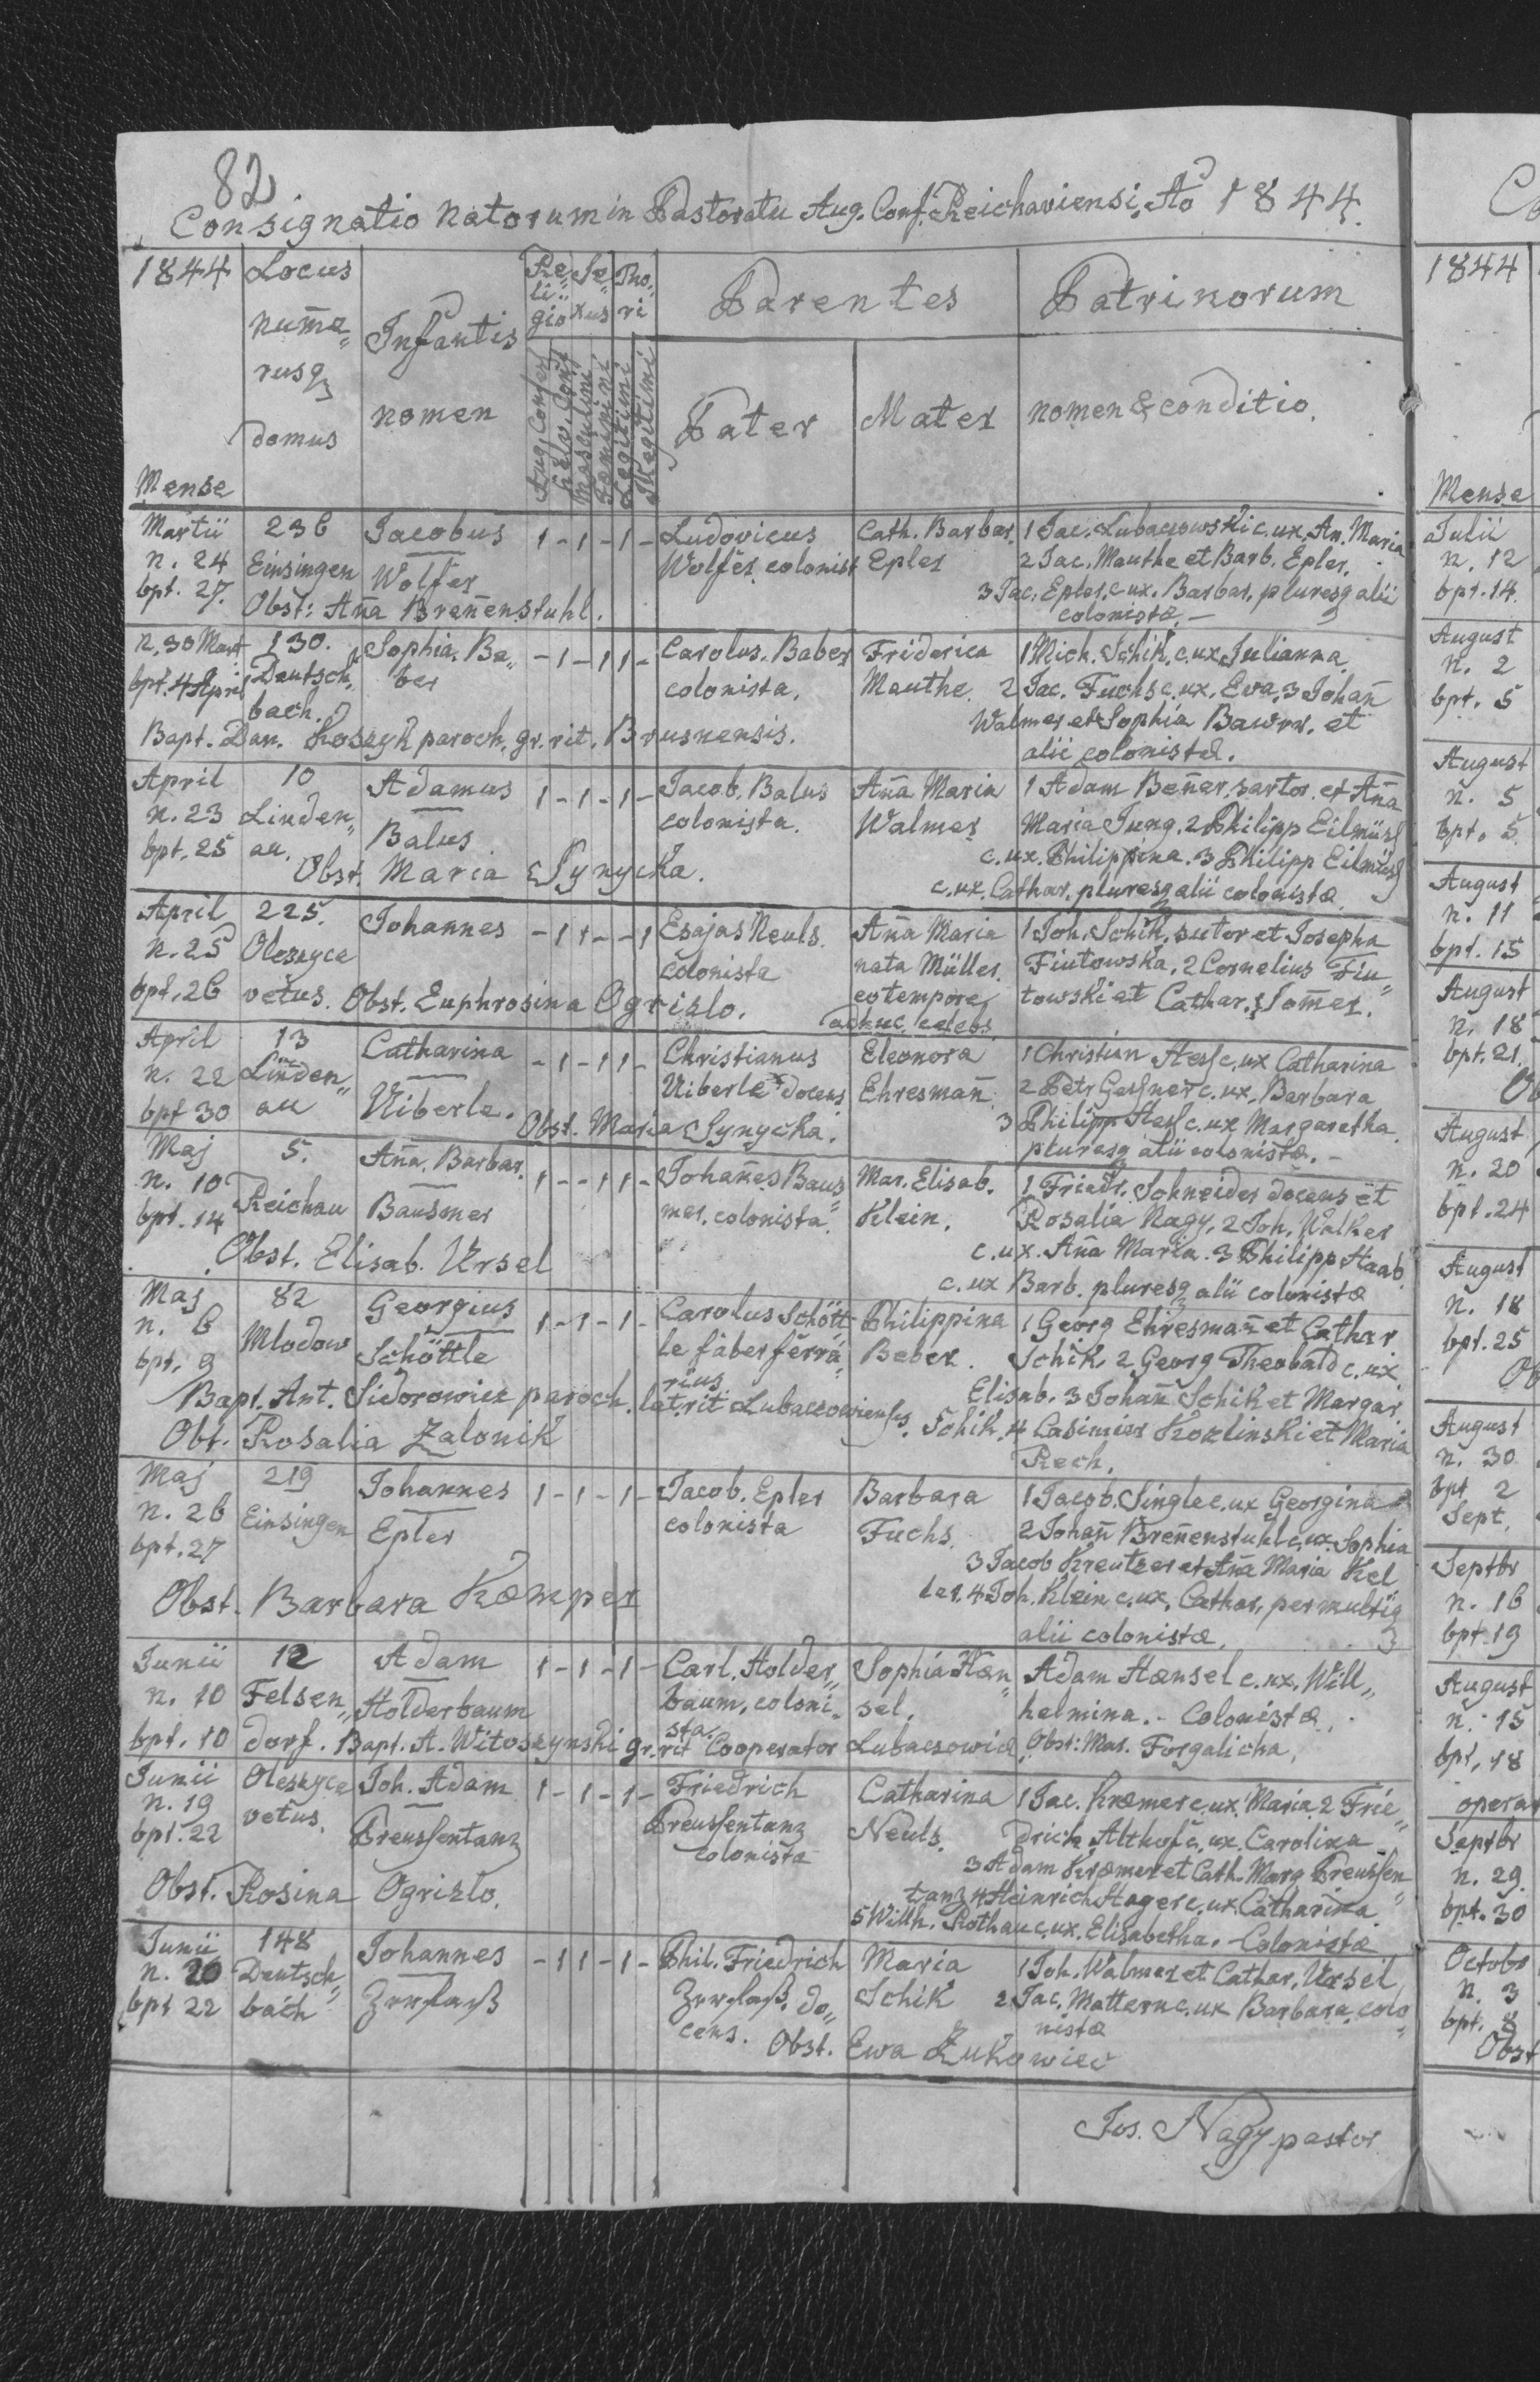 82
Consignatio Natorum in Pastoratu Aug. Conf. Reichaviensi, Ao 1844.
1844
Locus
nume„
rusq
domus
Infantis
nomen
Re„
li„
gio
Se„
xus
Tho„
ri
Parentes
Patrinorum
Aug. Confess
Helv. Conf
Masculini
Feminini
Legitimi
Illegitimi
Pater
Mater
nomen & conditio.
Mense
Martii 236 Jacobus 1 - 1 - 1 - Ludovicus Cath. Barbar. 1 Jac. Lubaczowski c. ux. An. Maria
n. 24 Einsingen Wolfer Wolfer colonist Epler 2 Jac. Mauthe et Barb. Epler.
bpt. 27. Obst: Aña Breñenstuhl. 3 Jac. Epler, c. ux. Barbar. pluresq alii
colonistæ. -
n. 30 Mart 130. Sophia Be„ - 1 - 1 1 - Carolus. Beber Friderica 1 Mich. Schik, c. ux Julianna.
bpt. 4 April Deutsch„ ber colonista. Mauthe 2 Jac. Fuchs c. ux. Eva, 3 Johañ
bach. Walmer et Sophia Bawrr. et
Bapt. Dan. Koszyk paroch. gr. rit. Brusnensis. alii colonistæ.
April 10 Adamus 1 - 1 - 1 - Jacob. Balus Aña Maria 1 Adam Beñer, sartor et Aña
n. 23 Linden„ Balus colonista. Walmer Maria Jung. 2 Philipp Eilmüss
bpt. 25 au. c. ux. Philippina. 3 Philipp Eilmüss
Obst. Maria Synycka. c. ux. Cathar. pluresq alii colonistæ
April 225. Johannes - 1 1 - - 1 Esajas Neuls. Aña Maria 1 Joh. Schik, sutor et Josepha
n. 25 Oleszyce colonista nata Müller. Fiutowska, 2 Cornelius Fiu„
bpt. 26 vetus. Obst. Euphrosina Ogrizlo. eo tempore towski et Cathar. Somer.
adhuc celebs
April 13 Catharina - 1 - 1 1 - Christianus Eleonora 1 Christian Hess c. ux Catharina
n. 22 Linden„ Uiberle. Uiberle docens Ehresmañ. 2 Petr Gessner c. ux. Barbara
bpt 30 au Obst. Maria Synycha. 3 Philipp Hess c. ux Margaretha
pluresq alii colonistæ. -
Maj 5. Aña Barbar. 1 - - 1 1 - Johañes Baus„ Mar. Elisab. 1 Friedr. Schneider docens et
n. 10 Reichau Bausmer mer, colonista. Klein. Rosalia Nagy. 2 Joh. Walker
bpt. 14 c. ux. Aña Maria. 3 Philipp Haab
Obst. Elisab. Ursel c. ux Barb. pluresq alii colonistæ
Maj 82 Georgius 1 - 1 - 1 - Carolus Schött„ Philippina 1 Georg Ehresmañ et Cathar
n. 6 Mlodow Schöttle le faber ferra„ Beber. Schik, 2 Georg Theobald c. ux
bpt. 9 rius Elisab. 3 Johañ Schik et Margar
Bapt. Ant. Sidorowicz paroch. lat. rit Lubaczowienses. Schik, 4 Casimier Kozlinski et Maria
Obt. Rosalia Zalonik Rech.
Maj 219 Johannes 1 - 1 - 1 - Jacob. Epler Barbara 1 Jacob. Single c. ux Georgina
n. 26 Einsingen Epler colonista Fuchs. 2 Johañ Breñenstuhl c. ux. Sophia
bpt. 27 3 Jacob Kreutzer et Aña Maria Kel
Obst. Barbara Kæmper ler. 4 Joh. Klein c. ux. Cathar, per multiq
alii colonistæ.
Junii 12 Adam 1 - 1 - 1 - Carl. Holder„ Sophia Hæn„ Adam Hænsel c. ux. Will„
n. 10 Felsen„ Holderbaum baum, coloni„ sel. helmina. - Colonistæ.
bpt. 10 dorf. Bapt. A. Witoszynski gr. rit Cooperator Lubaczowiæ. Obst: Mar. Forgalicha.
sta.
Junii Oleszyce Joh. Adam 1 - 1 - 1 - Friedrich Catharina 1 Jac. Kræmer c. ux. Maria 2 Frie„
n. 19 vetus. Preussentanz Preussentanz Neuls. drich Althof c. ux. Carolina
bpt. 22 colonista 3 Adam Kræmer et Cath. Marg Preussen„
Obst. Rosina Ogrizlo. tanz 4 Heinrich Hager c. ux. Catharina
5 Willh. Rothau c. ux. Elisabetha. - Colonistæ
Junii 148 Johannes - 1 1 - 1 - Phil. Friedrich Maria 1 Joh. Walmer et Cathar. Ursel
n. 20 Deutsch„ Zerfass Zerfass, do„ Schik 2 Jac. Mattern c. ux Barbara, colo„
bpt 22 bach cens. nistæ
Obst. Ewa Zukowiec
Jos. Nagy pastor.
1844
Mense
Julii
n. 12
bpt. 14.
August
n. 2
bpt. 5
August
n. 5
bpt. 5
August
n. 11
bpt. 15
August
n. 18
bpt. 21.
August
n. 20
bpt. 24
August
n. 18
bpt. 25
August
n. 30
bpt 2
Sept.
Septbr
n. 16
bpt. 19
August
n. 15
bpt. 18
Septbr
n. 29
bpt. 30
Octobr
n. 3
bpt. 8
Obst